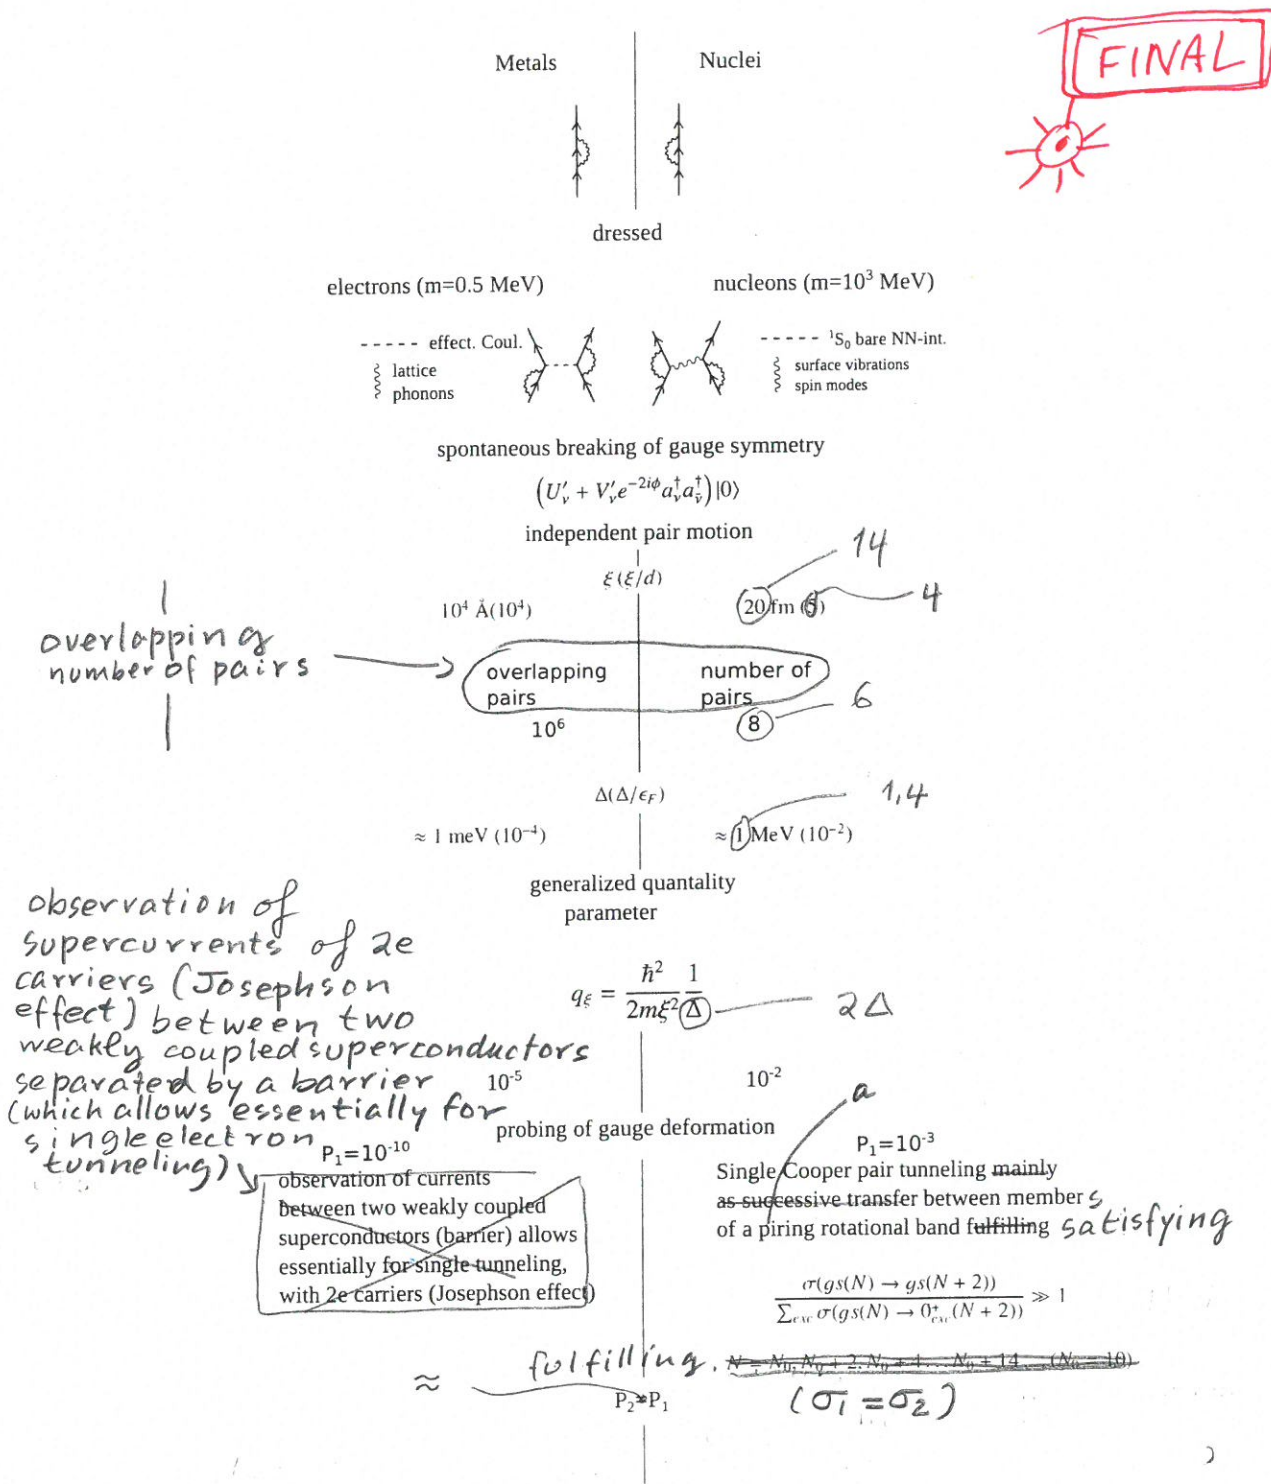 FINAL
Metals
Nuclei
dressed
electrons (m=0.5 MeV)
nucleons (m=10³ MeV)
----- effect. Coul.
lattice
phonons
----- ¹S₀ bare NN-int.
surface vibrations
spin modes
spontaneous breaking of gauge symmetry
(U′ν + V′ν e^{−2iϕ} a†ν a†ν̃)|0⟩
independent pair motion
14
ξ(ξ/d)
10⁴ Å(10⁴)
20 fm (5)
4
overlapping
number of pairs
overlapping
pairs
number of
pairs
6
10⁶
8
Δ(Δ/ϵF)
1,4
≈ 1 meV (10⁻⁴)
≈ 1 MeV (10⁻²)
generalized quantality
parameter
observation of
supercurrents of 2e
carriers (Josephson
effect) between two
weakly coupled superconductors
separated by a barrier
(which allows essentially for
single electron
tunneling)
qξ = ħ²/2mξ² 1/Δ
2Δ
10⁻⁵
10⁻²
a
probing of gauge deformation
P₁=10⁻¹⁰
P₁=10⁻³
observation of currents
between two weakly coupled
superconductors (barrier) allows
essentially for single tunneling,
with 2e carriers (Josephson effect)
Single Cooper pair tunneling mainly
as successive transfer between members
of a piring rotational band fulfilling satisfying
σ(gs(N) → gs(N + 2))
∑exc σ(gs(N) → 0⁺exc(N + 2)) ≫ 1
fulfilling. N = N₀, N₀ + 2, N₀ + 4 ... N₀ + 14 ... (N₀ = 10)
≈
P₂ P₁
(σ₁ = σ₂)